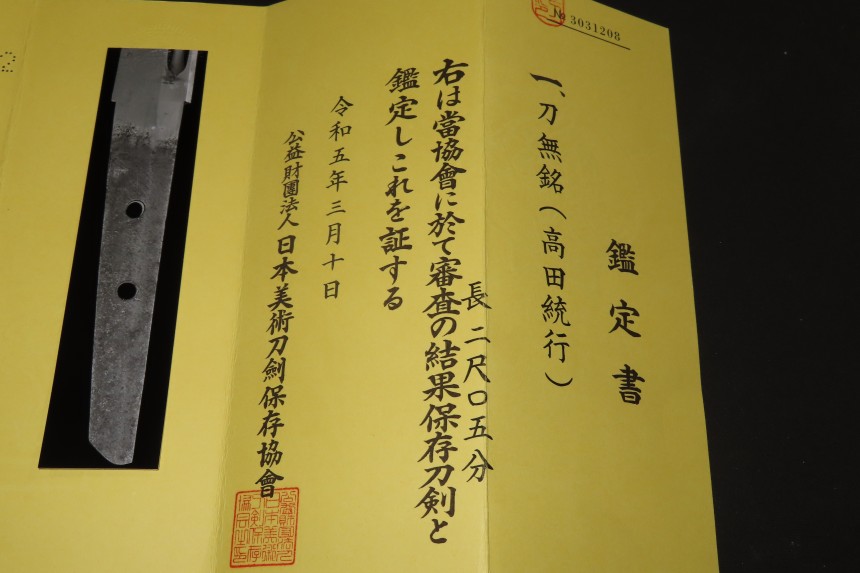 № 3031208
鑑定書
一、刀無銘(高田統行)
長二尺〇五分
右は當協會に於て審査の結果保存刀剣と
鑑定しこれを証する
令和五年三月十日
公益財團法人日本美術刀劍保存協會